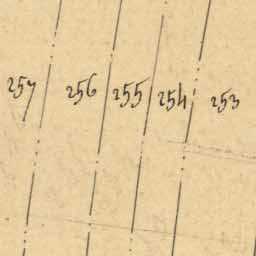 257 256 255 254 253